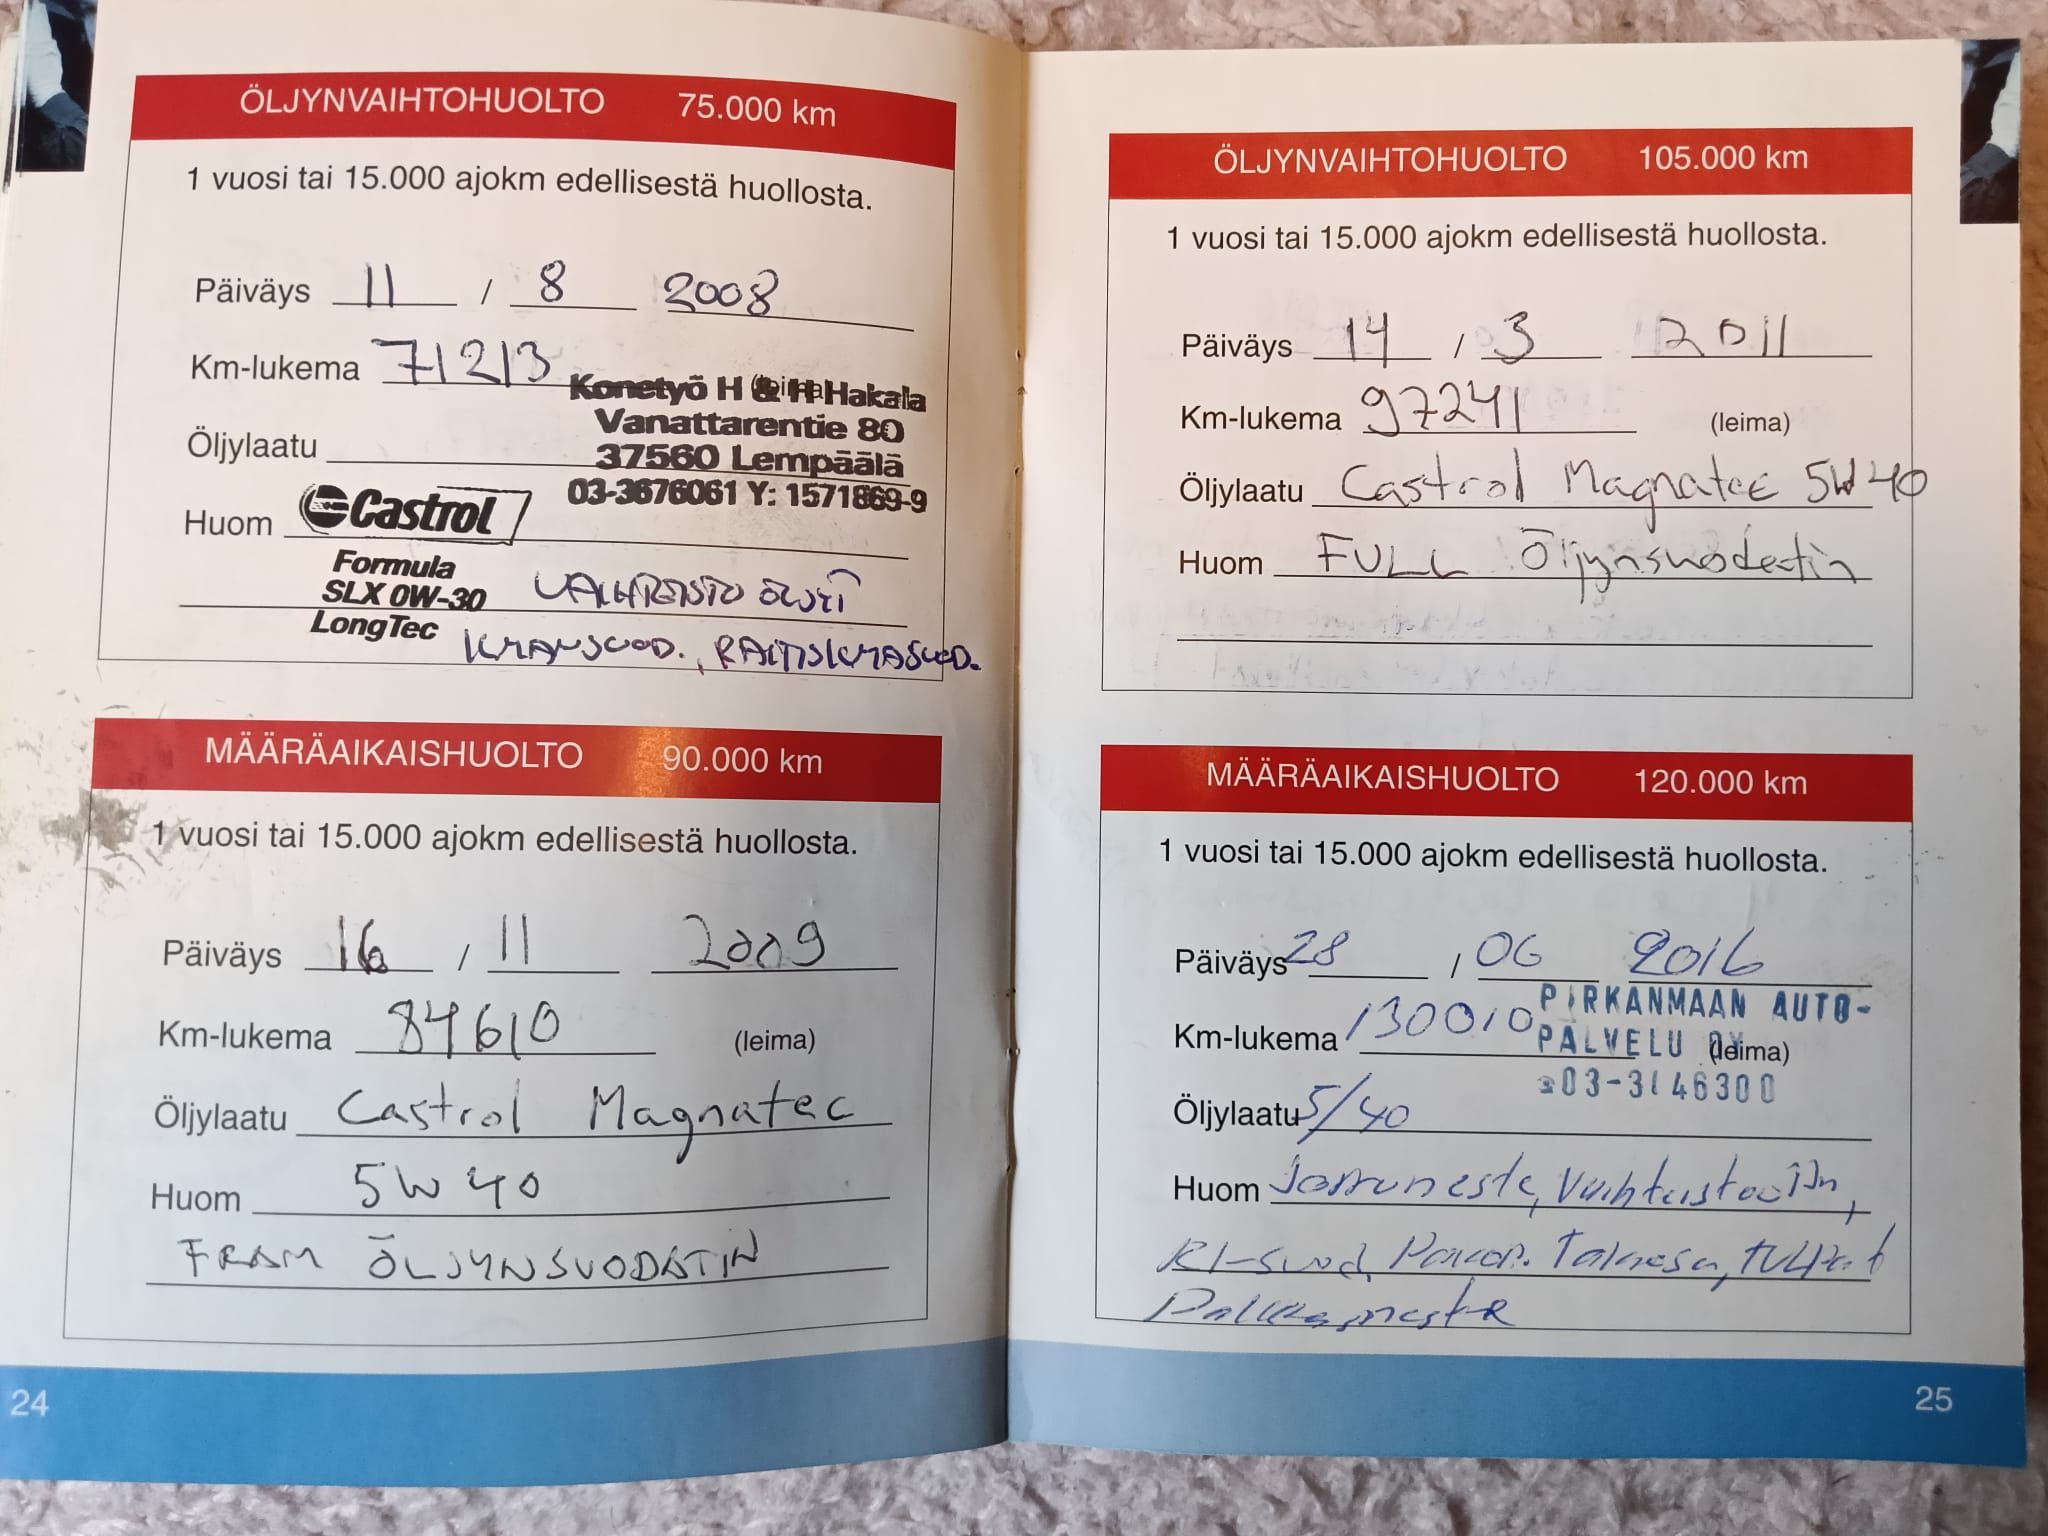 ÖLJYNVAIHTOHUOLTO 75.000 km
1 vuosi tai 15.000 ajokm edellisestä huollosta.
Päiväys 11 / 8 2008
Km-lukema 71213 (leima)
Konetyö H & H Hakala
Vanattarentie 80
37560 Lempäälä
03-3676061 Y: 1571869-9
Öljylaatu
Huom Castrol
Formula
SLX 0W-30
LongTec
VAIHTEISTO ÖLJYT
ILMANSUOD., RAITISILMASUOD.
MÄÄRÄAIKAISHUOLTO 90.000 km
1 vuosi tai 15.000 ajokm edellisestä huollosta.
Päiväys 16 / 11 2009
Km-lukema 84610 (leima)
Öljylaatu Castrol Magnatec
Huom 5W40
FRAM ÖLJYNSUODATIN
24
ÖLJYNVAIHTOHUOLTO 105.000 km
1 vuosi tai 15.000 ajokm edellisestä huollosta.
Päiväys 14 / 3 2011
Km-lukema 97241 (leima)
Öljylaatu Castrol Magnatec 5W40
Huom FULL Öljynsuodatin
MÄÄRÄAIKAISHUOLTO 120.000 km
1 vuosi tai 15.000 ajokm edellisestä huollosta.
Päiväys 28 / 06 2016
PIRKANMAAN AUTO-
Km-lukema 130010 PALVELU OY (leima)
03-3146300
Öljylaatu 5/40
Huom Jarruneste, Vaihteistoöljy,
RI-suod, Takaosa, tulpat
25